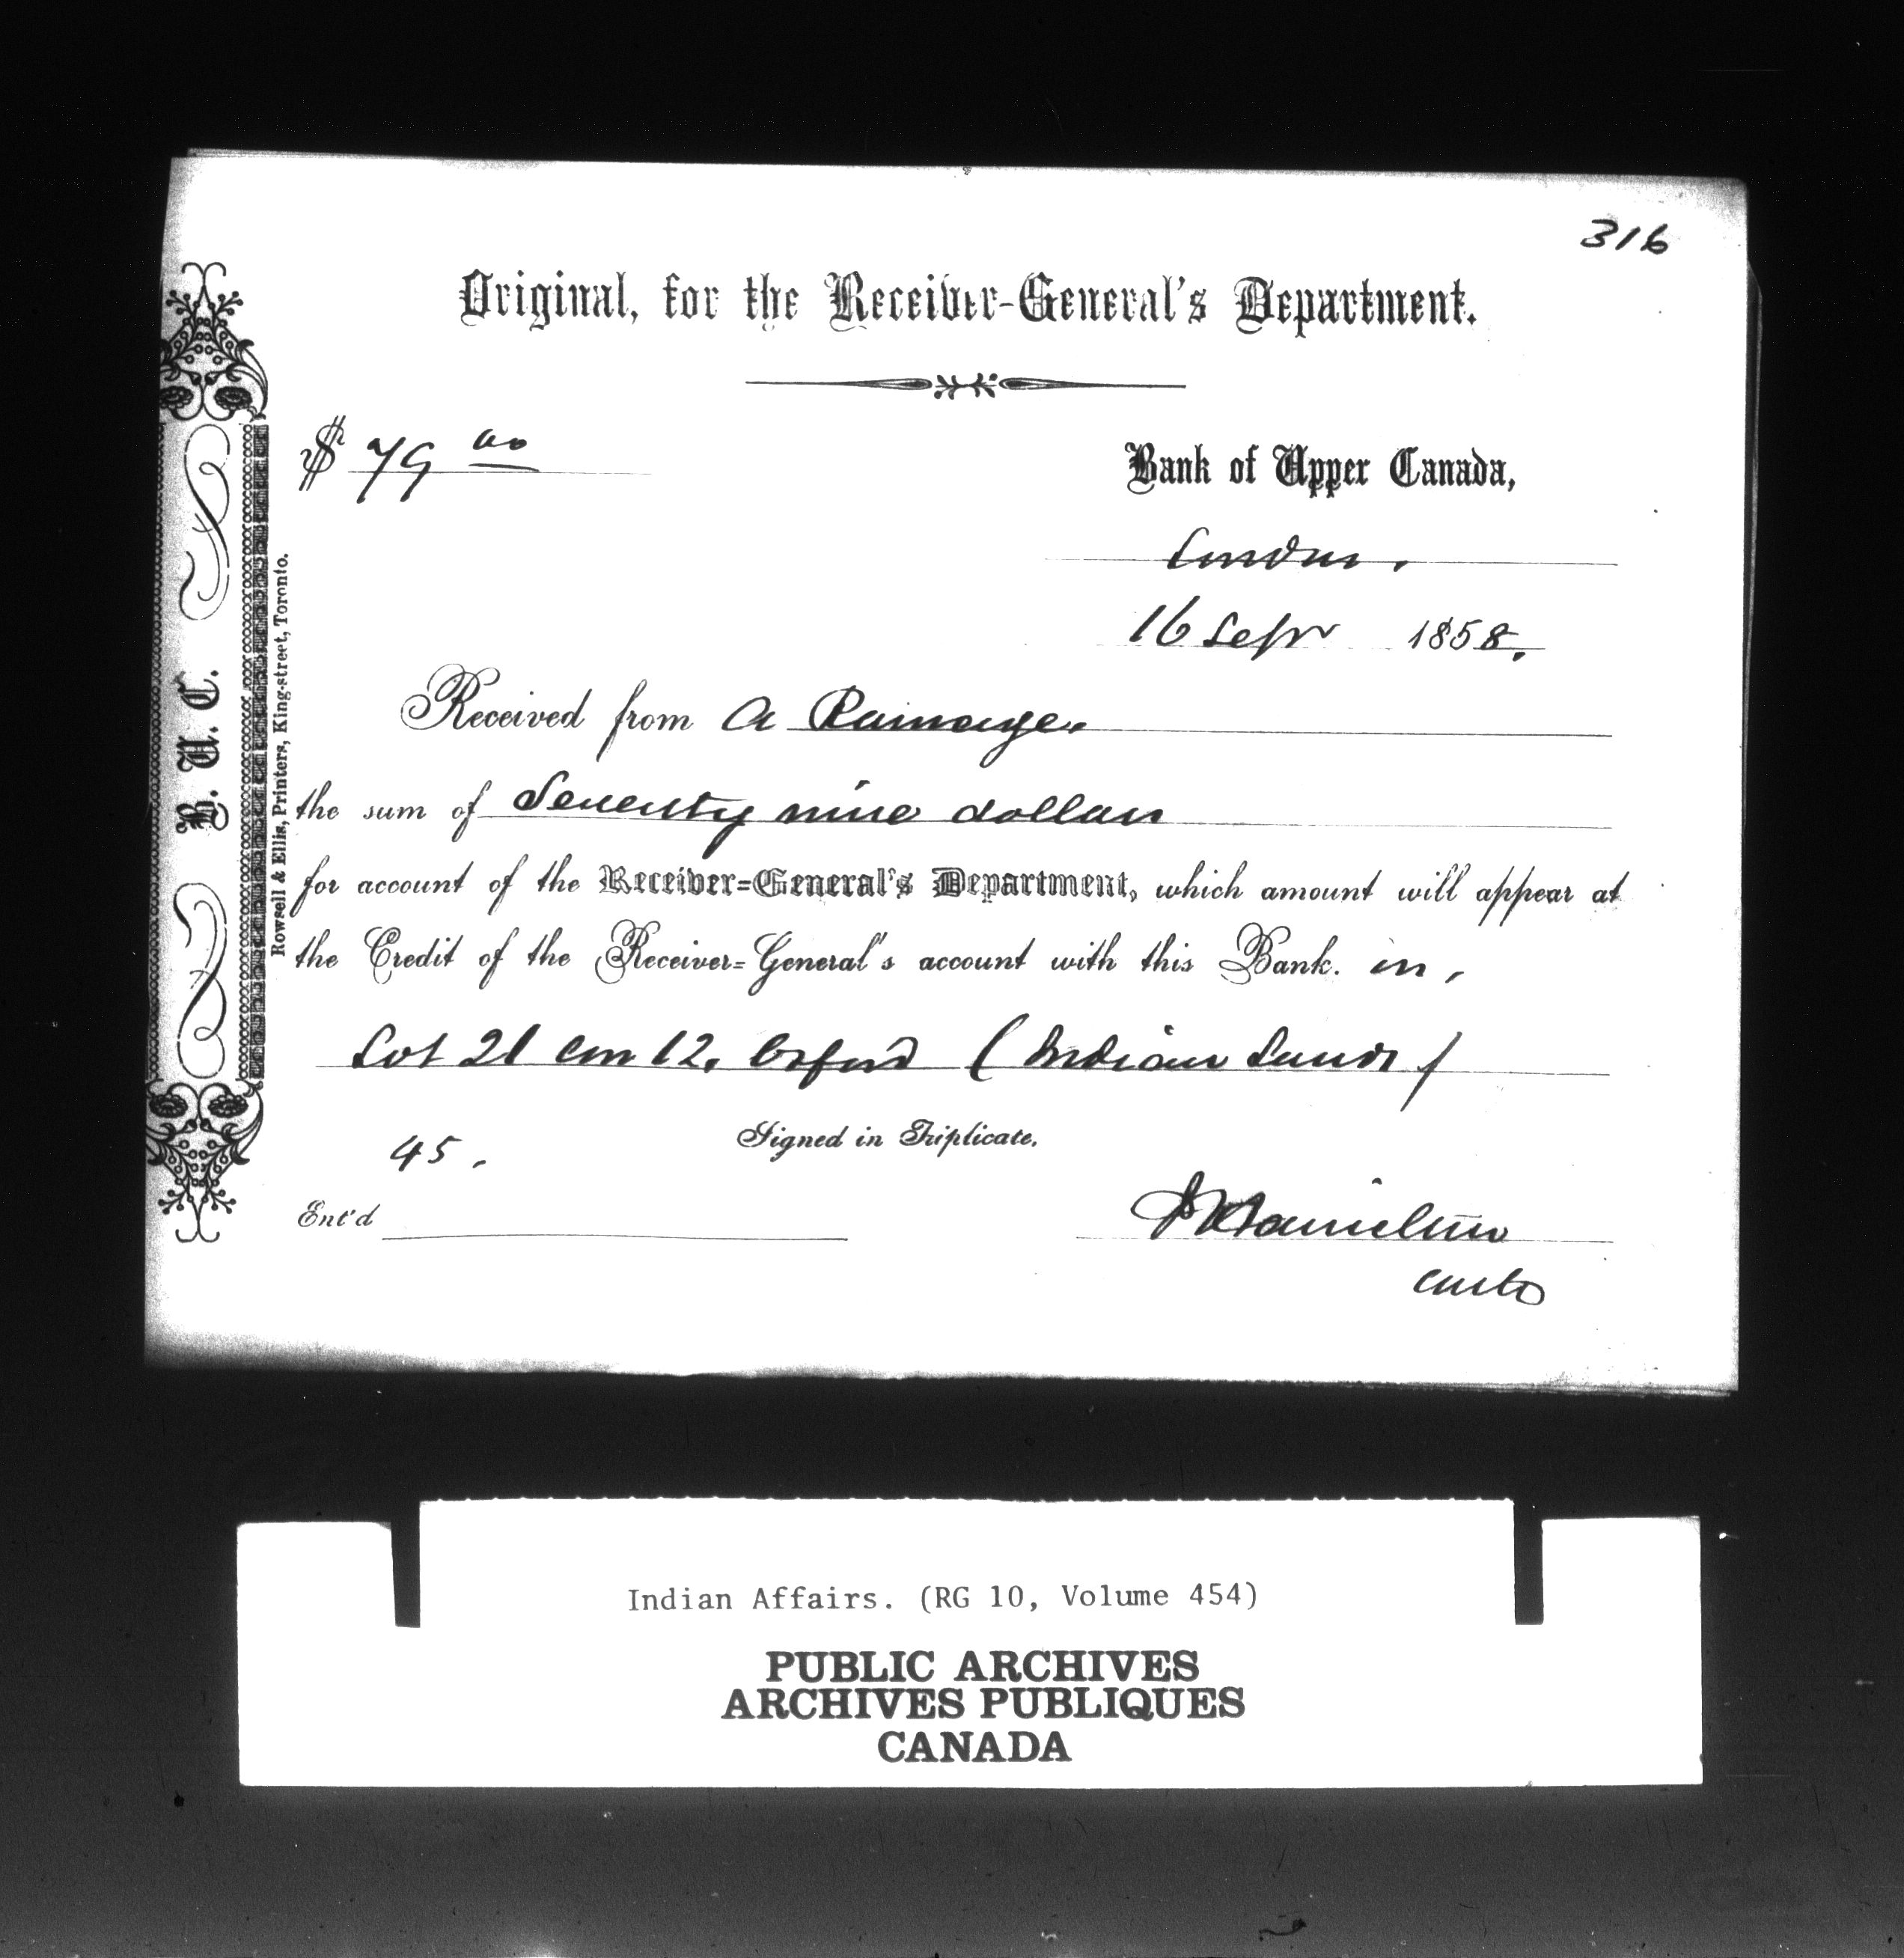 316
Original, for the Receiver-General's Department.
$ 79 00
Bank of Upper Canada,
London.
16 Sepr 1858.
Received from A Ramage.
the sum of Seventy nine dollars
for account of the Receiver-General's Department, which amount will appear at
the Credit of the Receiver-General's account with this Bank. on,
Lot 21 Con 12. Orford (Indian Lands)
45.
Signed in Triplicate.
Ent'd
Hamilton
B. U. C.
Rowsell & Ellis, Printers, King-street, Toronto.
Indian Affairs. (RG 10, Volume 454)
PUBLIC ARCHIVES
ARCHIVES PUBLIQUES
CANADA